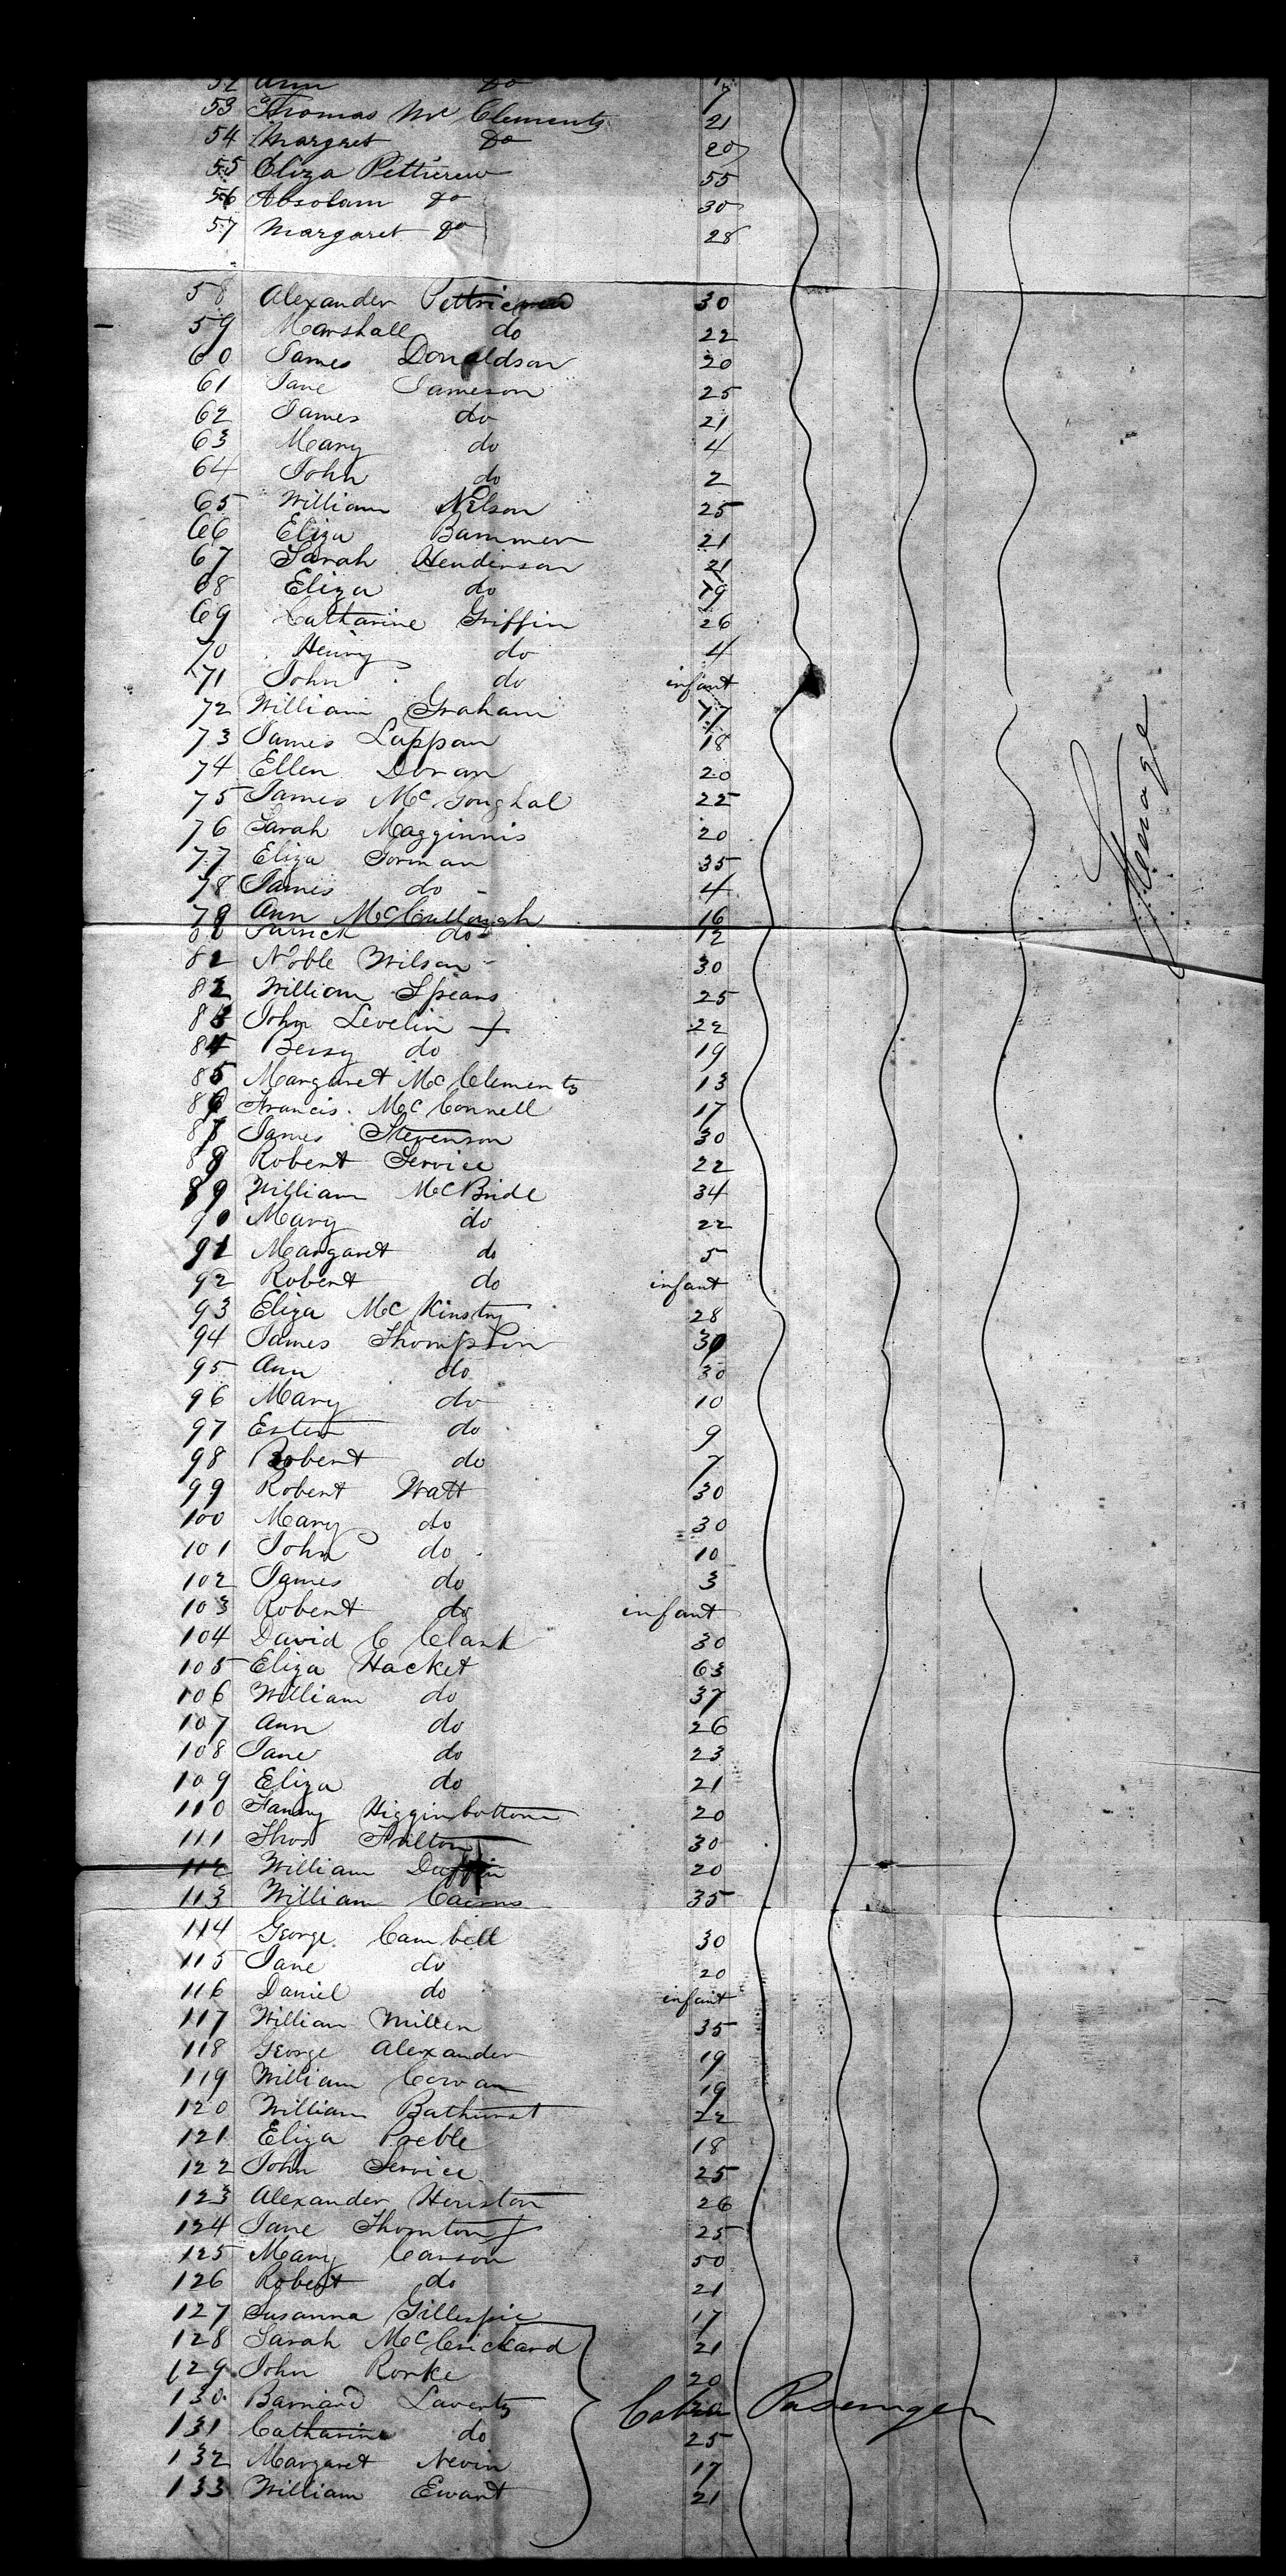 52 Ann do
53 Thomas Mc Clements 21
54 Margaret do 20
55 Eliza Petticrew 55
56 Absolam do 30
57 Margaret do 28
58 Alexander Petticrew 30
59 Marshall do 22
60 James Donaldson 20
61 Jane Jameson 25
62 James do 21
63 Mary do 4
64 John do 2
65 William Nelson 25
66 Eliza Bammer 21
67 Sarah Henderson 21
68 Eliza do 19
69 Catharine Griffin 26
70 Henry do 4
71 John do infant
72 William Graham 17
73 James Lappan 18
74 Ellen Doran 20
75 James Mc Gonghal 22
76 Sarah Magginnis 20
77 Eliza Gorman 35
78 James do 4
79 Ann McCullough 16
Patrick do 12
82 Noble Wilson 30
82 William Spears 25
83 John Levelin 22
84 Bessy do 19
85 Margaret Mc Clements 13
86 Francis Mc Connell 17
87 James Stevenson 30
88 Robert Service 22
89 William McBride 34
90 Mary do 22
91 Margaret do 5
92 Robert do infant
93 Eliza Mc Kinstry 28
94 James Thompson 30
95 Ann do 30
96 Mary do 10
97 Ester do 9
98 Robert do 7
99 Robert Watt 30
100 Mary do 30
101 John do 10
102 James do 3
103 Robert do infant
104 David C Clark 30
105 Eliza Hacket 63
106 William do 37
107 Ann do 26
108 Jane do 23
109 Eliza do 21
110 Fanny Higginbottom 20
111 Thos Hilton 30
112 William Duffin 20
113 William Cairns 35
114 George Cambell 30
115 Jane do 20
116 Daniel do infant
117 William Millen 35
118 George Alexander 19
119 William Cowan 19
120 William Bathurst 22
121 Eliza Preble 18
122 John Service 25
123 Alexander Houston 26
124 Jane Thornton 25
125 Mary Carson 50
126 Robert do 21
127 Susanna Gillespie 17
128 Sarah McCrickard 21
129 John Rorke 20
130 Barnard Laverty 20
131 Catharine do 25
132 Margaret Nevin 17
133 William Ewart 21
Cabin Passenger
Steerage